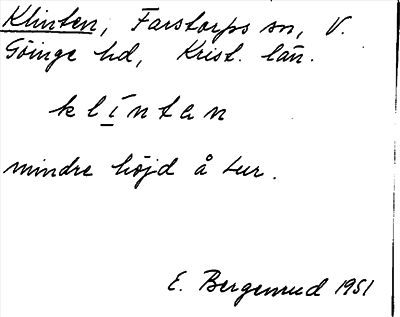 Klinten, Farstorps sn, V.
Göinge hd, Krist. län.
klíntan
mindre höjd å tur.
E. Bergemud 1951